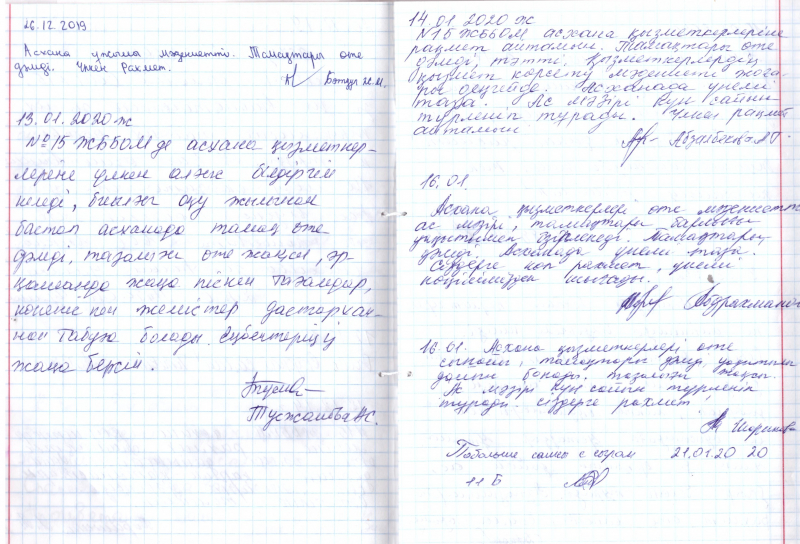 26.12.2019
Асхана ұжымы мәдениетті. Тамақтары өте
дәмді. Үлкен Рахмет.
13.01.2020 ж
№15 ЖББОМ де асхана қызметкер-
леріне үлкен алғыс білдіргім
келеді, биылғы оқу жылынан
бастап асханада тамақ өте
дәмді, тазалығы өте жақсы, әр
қашанда жаңа піскен тағамдар,
көкөніс пен жемістер дастархан-
нан табуға болады. Еңбектеріңіз
жана берсін.
Тусжанова К.С.
14.01.2020 ж
№15 ЖББОМ асхана қызметкерлеріне
рақмет айтамын. Тамақтары өте
дәмді, тәтті. Қызметкерлердің
қызмет көрсету мәдениеті жоға-
ры деңгейде. Асханада үнемі
таза. Ас мәзірі күн сайын
түрленіп тұрады. Үлкен рақмет
айтамын
16.01.
Асхана қызметкерлері өте мәдениетті
ас мәзірі, тамақтары барлығы
дәмді. Асханада үнемі таза.
Сіздерге көп рахмет, үнемі
көңіліміздан шығады.
Абдрахманов
16.01. Асхана қызметкерлері өте
сыпайы, тамақтары дәмді, уақытылы
дайын болады. Тазалығы жақсы.
Ас мәзірі күн сайын түрленіп
тұрады. Сіздерге рахмет!
Побольше самсы с сыром 21.01.20 20
11 Б